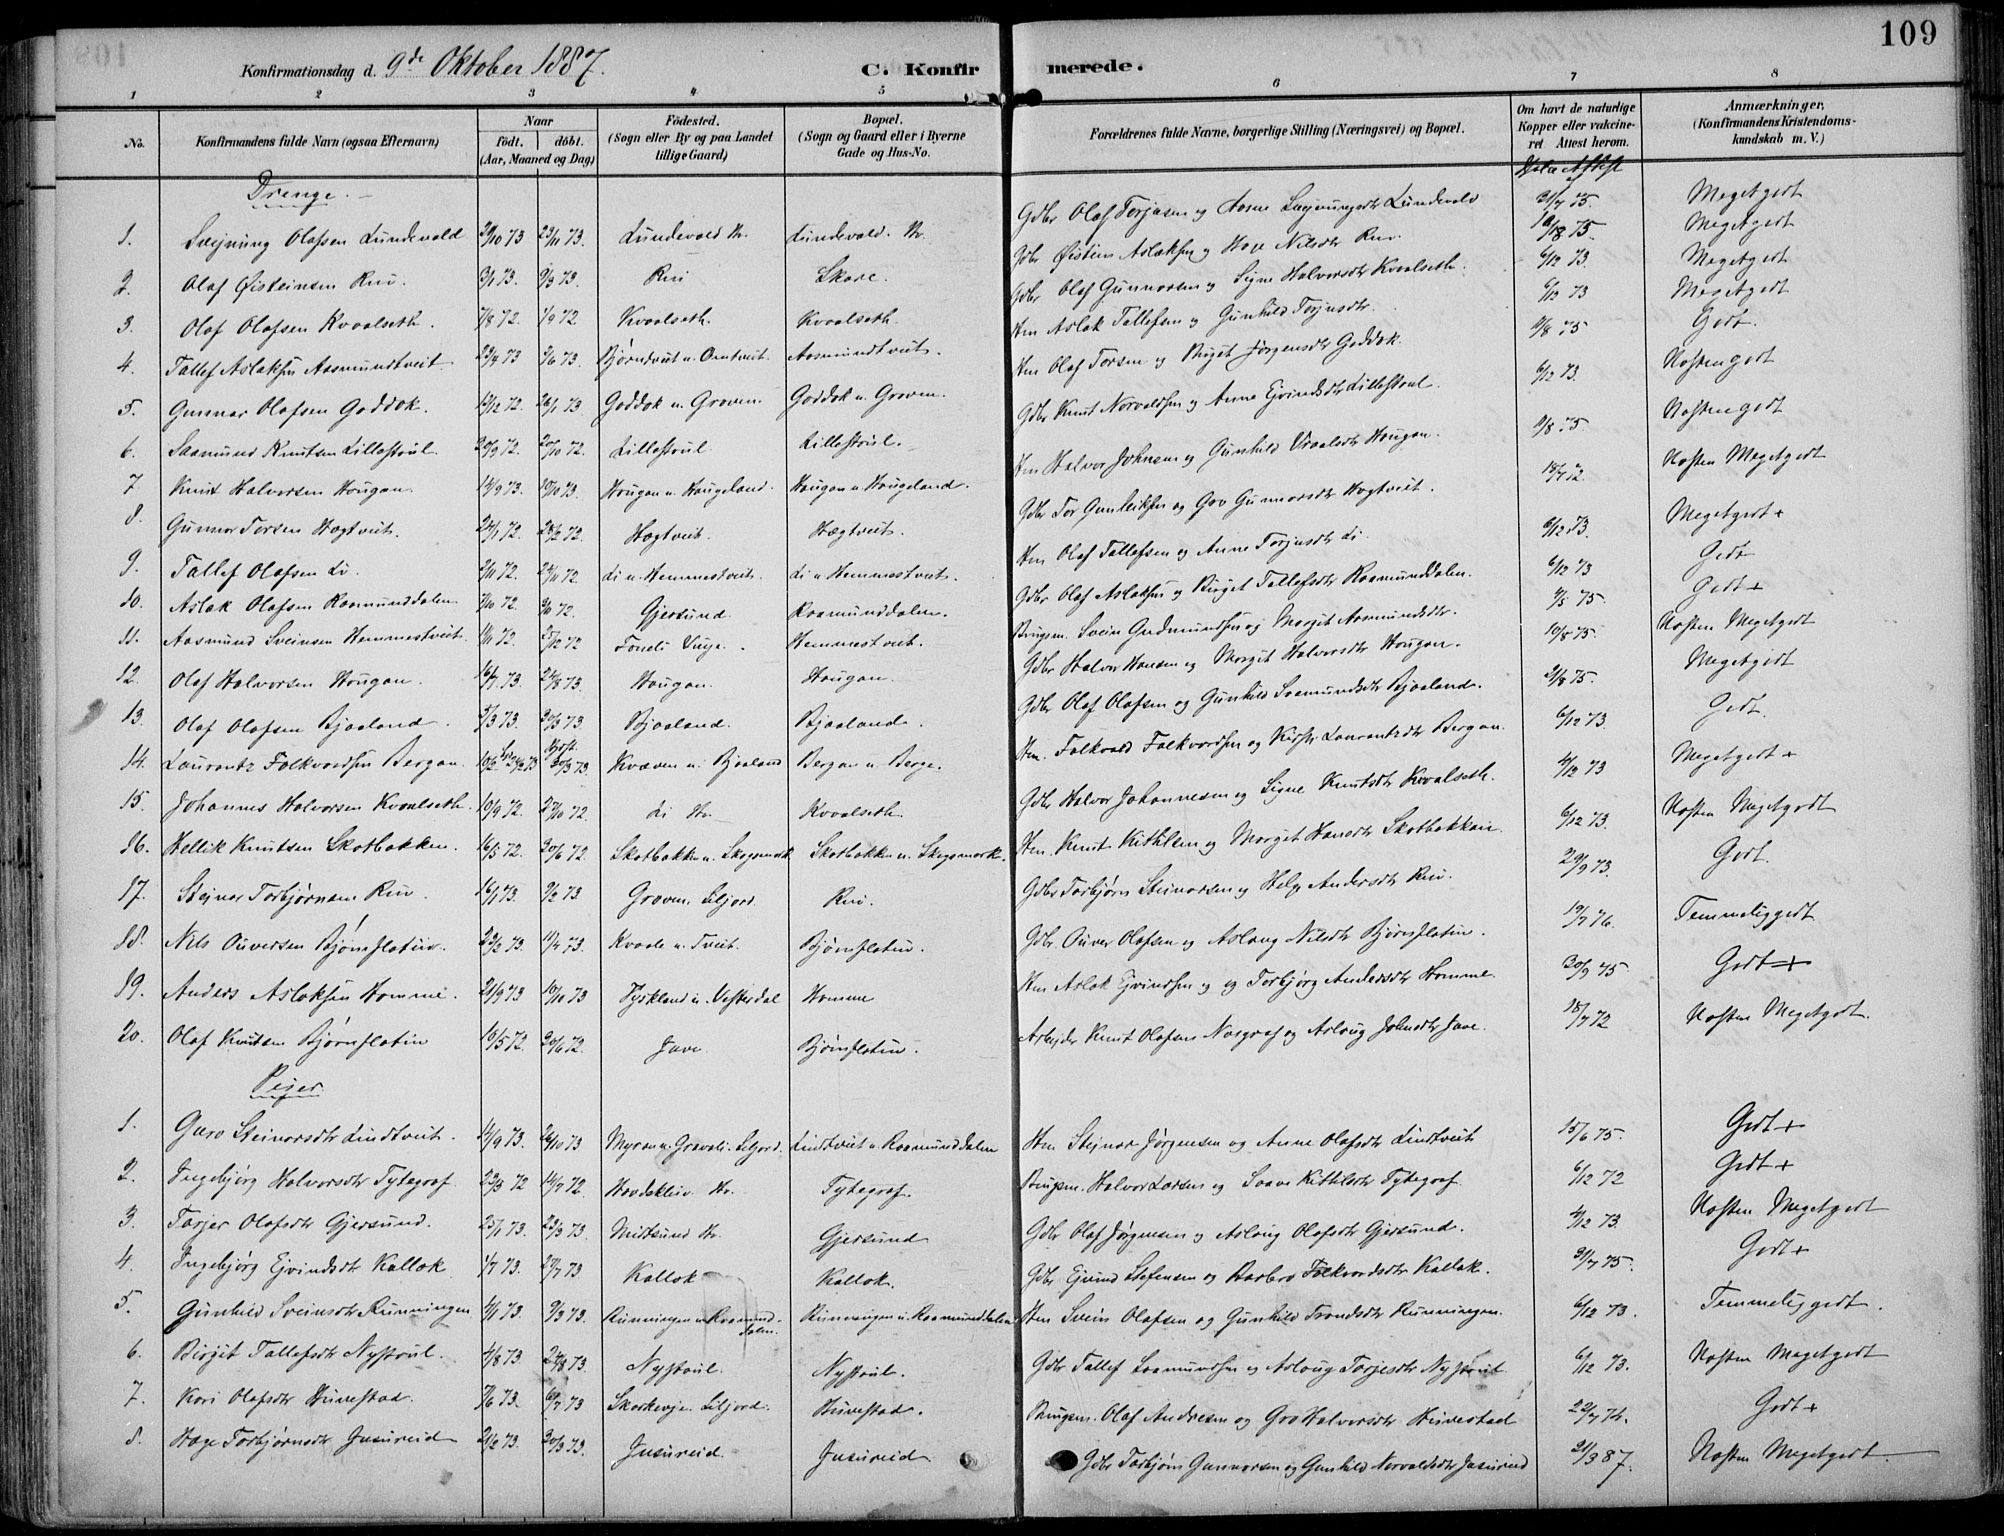 109
Konfirmationsdag d. 9de Oktober 1887. C. Konfirmerede.
1 2 3 4 5 6 7 8
No. Konfirmandens fulde Navn (ogsaa Efternavn) Naar født. døbt. (Aar, Maaned og Dag) Fødested. (Sogn eller By og paa Landet tillige Gaard) Bopæl. (Sogn og Gaard eller i Byerne Gade og Hus-No. Forældrenes fulde Navne, borgerlige Stilling (Næringsvei) og Bopæl. Om havt de naturlige Kopper eller vakcineret Attest herom. Anmærkninger, (Konfirmandens Kristendomskundskab m. V.)
Drenge.
1. Svejnung Olafsen Lundevald 29/10 73 23/11 73. Lundevald Hr. Lundevald. Hr. Gdbr Olaf Torjusen og Aasne Svejnungsdtr Lundevald 21/7 75. Megetgodt
2. Olaf Øisteinsen Rui. 3/1 73. 9/3 73. Rui Skare. Gdbr Øistein Aslaksen og Hæge Nilsdtr Rui. 19/8 75. Megetgodt
3. Olaf Olafsen Kvaalseth. 7/8 72. 1/9 72 Kvaalseth. Kvaalseth Gdbr Olaf Gunnarsen og Signe Halvorsdtr Kvaalseth. 6/12 73. Megetgodt
4. Tallef Aslaksen Aasmundtveit 23/4 73 2/6 73. Bjørndveit u. Omtveit. Aasmundtveit. Hm Aslak Tallefsen og Gunhild Torjusdtr. 6/12 73 Megetgodt
5. Gunnar Olafsen Goddok. 12/12 72. 26/1 73 Goddok u. Groven. Goddok u. Groven. Hm Olaf Torsen og Birgit Jørgensdtr Goddok. 11/8 75 Godt.
6. Saamund Knutsen Lillestoul. 20/9 72. 20/10 72. Lillestoul Lillestoul. Gdbr Knut Norvaldsen og Anne Ejvindsdtr Lillestoul. 6/12 73. Næsten godt
7. Knut Halvorsen Hougan. 14/9 73. 19/10 73. Hougan u. Hougeland. Hougan u Hougeland. Hm Halvor Johnsen og Gunhild Vraalsdtr Hougan. 11/8 75 Næsten godt
8. Gunnar Torsen Hægtveit. 24/1 72. 28/2 72. Hægtveit. Hægtveit. Gdbr Tor Gunleiksen og Gro Gunnarsdtr Hægtveit. 18/7 72. Næsten Megetgodt
9. Tallef Olafsen Li. 2/11 72. 24/11 72. Li u. Hemmestveit. Li u Hemmestveit. Hm Olaf Tallefsen og Anne Torjusdtr Li. 6/12 73. Megetgodt +
10. Aslak Olafsen Raamunddalen 3/10 72. 3/11 72. Gjersund Raamunddalen. Gdbr Olaf Aslaksen og Birgit Tallefsdtr Raamunddalen. 6/12 73 Godt
11. Aasmund Sveinsen Hemmestveit. 11/11 72. 25/12 72 Foneli Vinje. Hemmestveit. Brugsm. Svein Gudmundsen og Margit Aasmundsdtr. 9/5 75. Godt +
12. Olaf Halvorsen Hougan. 16/7 73. 24/8 73. Hougan. Hougan. Gdbr Halvor Hansen og Margit Halvorsdtr Hougan. 10/8 75. Næsten Megetgodt
13. Olaf Olafsen Bjaaland. 5/3 73. 30/3 73. Bjaaland. Bjaaland. Gdbr Olaf Olafsen og Gunhild Saamundsdtr Bjaaland. 21/8 75. Megetgodt
14. Laurantz Folkvardsen Bergan. Kvæven u. Bjaaland Bergan u. Berge. Hm. Folkvald Folkvardsen og Kirsti Laurantzdtr Bergan. 6/12 73 Godt.
15. Johannes Halvorsen Kvaalseth. 10/9 72. 27/10 72. Li Hr. Kvaalseth Gdbr Halvor Johannesen og Signe Knutsdtr Kvaalseth. 4/12 73 Megetgodt +
16. Hellik Knutsen Skotbakken. 16/5 72. 30/6 72. Skotbakken u. Skogsmark Skotbakken u. Skogsmark. Hm. Knut Kittilsen og Margit Hansdtr Skotbakken. 6/12 73. Næsten Megetgodt
17. Stejnar Torbjørnsen Rui. 16/1 73. 9/2 73. Groven Siljord. Rui. Gdbr Torbjørn Steinarsen og Helge Andersdtr Rui. 29/9 73. Godt.
18. Nils Ouversen Bjørnflatin. 23/2 73. 11/4 73. Kvaale u. Tveit. Bjørnflatin. Gdbr. Ouver Olafsen og Aslaug Nilsdtr Bjørnflatin. 19/7 76. Temmelig godt
19. Anders Aslaksen Homme. 21/9 73 19/10 73 Tyskland u. Vesterdal Homme Hm Aslak Ejvindsen og og Torbjørg Andersdtr Homme. 30/9 75 Godt +
20. Olaf Knutsen Bjørnflatin 19/5 72. 30/6 72. Jave. Bjørnflatin. Arbejder Knut Olafsen Nasgraf og Aslaug Johnsdtr Jave. 18/7 72 Næsten Megetgodt.
Piger
1. Guro Steinarsdtr Lindtveit. 14/9 73. 26/10 73 Myran u. Gravali. Siljord. Lindtveit u Raamunddalen Hm Stejnar Jørgensen og Anne Olafsdtr Lindtveit 15/6 75. Godt +
2. Ingebjørg Halvorsdtr Tytegraf 23/3 72 14/7 72. Hovdekleiv. Hr. Tytegraf. Brugsm. Halvor Larsen og Saave Kittilsdtr Tytegraf 6/12 72 Godt +
3. Torjer Olafsdtr Gjersund. 25/1 73. 23/3 73. Midtsund Hr. Gjersund Gdbr Olaf Jørgensen og Aslaug Olafsdtr Gjersund. 4/12 73. Næsten Megetgodt
4. Ingebjørg Ejvindsdtr Kallok 1/7 73. 27/7 73 Kallok Kallok. Gdbr Ejvind Stefensen og Barbro Folkvardsdtr Kallok. 31/7 75. Godt +
5. Gunhild Sveinsdtr Runningen 4/1 73. 9/3 73. Runningen u. Raamunddalen. Runningen u. Raamunddalen Hm Svein Olafsen og Gunhild Trondsdtr Runningen. 6/12 73. Temmelig godt.
6. Birgit Tallefsdtr Nystoul. 4/8 73. 24/8 73. Nystoul. Nystoul. Gdbr Tallef Saamundsen og Aslaug Torjesdtr Nystoul 6/12 73. Næsten Megetgodt
7. Kari Olafsdtr Huvestad. 7/6 73. 6/7 73 Skorkevje Siljord. Huvestad. Brugsm. Olaf Andresen og Gro Halvorsdtr Huvestad 22/7 74. Godt +
8. Hæge Torbjørnsdtr Jusureid 21/2 73. 30/3 73. Jusureid. Jusureid Gdbr Torbjørn Gunnarsen og Gunhild Norvaldsdtr Jusureid 21/3 87. Næsten Megetgodt.